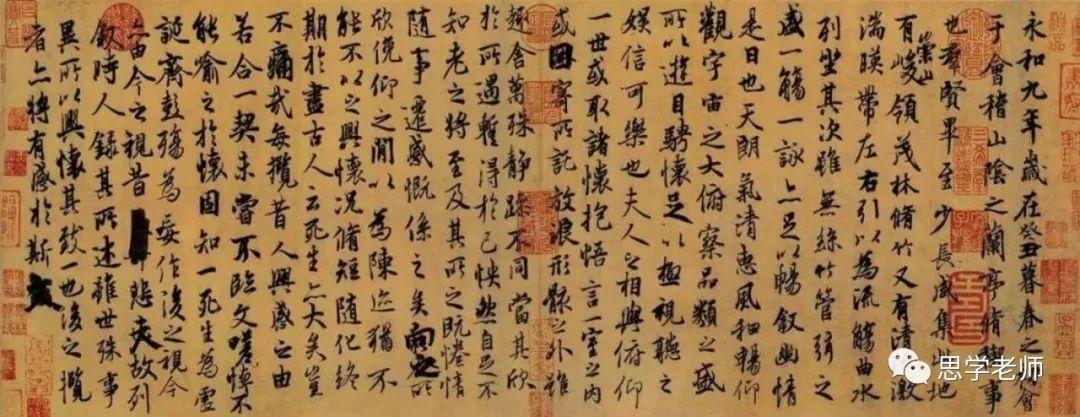 永和九年歲在癸丑暮春之初會
于會稽山陰之蘭亭脩禊事
也羣賢畢至少長咸集此地
有崇山峻領茂林脩竹又有清流激
湍暎帶左右引以為流觴曲水
列坐其次雖無絲竹管弦之
盛一觴一詠亦足以暢敘幽情
是日也天朗氣清惠風和暢仰
觀宇宙之大俯察品類之盛
所以遊目騁懷足以極視聽之
娛信可樂也夫人之相與俯仰
一世或取諸懷抱悟言一室之內
或因寄所託放浪形骸之外雖
趣舍萬殊靜躁不同當其欣
於所遇蹔得於己怏然自足不
知老之將至及其所之既惓情
隨事遷感慨係之矣向之所
欣俛仰之閒以為陳迹猶不
能不以之興懷況脩短隨化終
期於盡古人云死生亦大矣豈
不痛哉每攬昔人興感之由
若合一契未嘗不臨文嗟悼不
能喻之於懷固知一死生為虛
誕齊彭殤為妄作後之視今
亦由今之視昔悲夫故列
敘時人錄其所述雖世殊事
異所以興懷其致一也後之攬
者亦將有感於斯文
思学老师